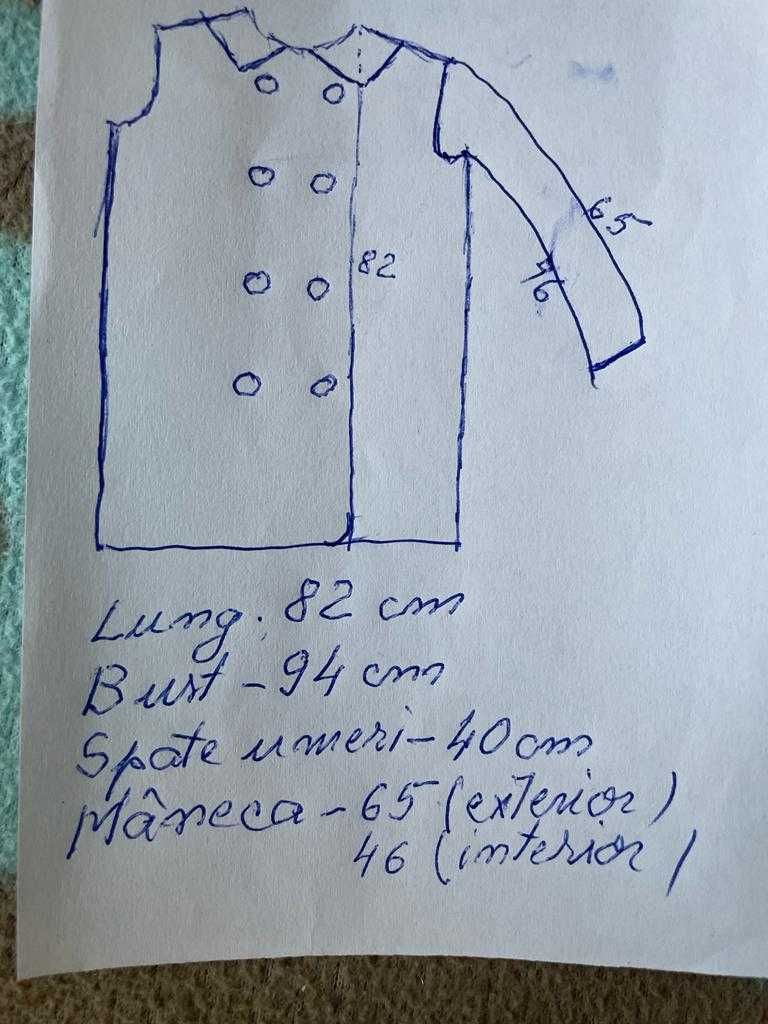 65
46
82
Lung. 82 cm
Bust - 94 cm
Spate umeri - 40 cm
Mâneca - 65 (exterior)
46 (interior)